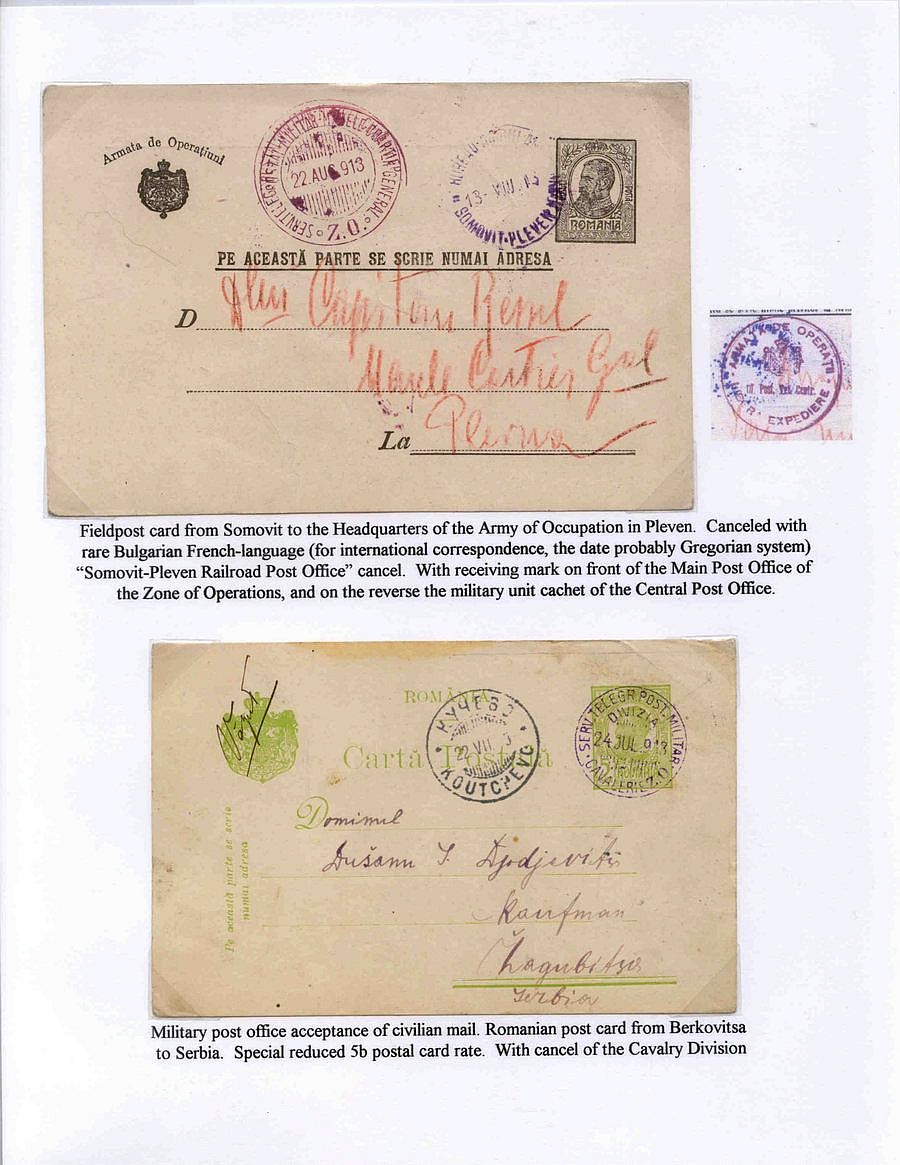 Armata de Operaţiuni
22.AUG 913
Z.O.
SOMOVIT-PLEVEN
ROMANIA
PE ACEASTĂ PARTE SE SCRIE NUMAI ADRESA
D Capitan
Gal
La Plevna
ARMATA DE OPERATII
EXPEDIERE
Fieldpost card from Somovit to the Headquarters of the Army of Occupation in Pleven. Canceled with
rare Bulgarian French-language (for international correspondence, the date probably Gregorian system)
“Somovit-Pleven Railroad Post Office” cancel. With receiving mark on front of the Main Post Office of
the Zone of Operations, and on the reverse the military unit cachet of the Central Post Office.
ROMÂNIA
Cartă Poştală
КУЧЕВО
22 VII
KOUTCHEVO
SERV.TELEGR.POST.MILITAR
DIVIZIA
24 JUL 913
CAVALERIE Z.O.
Pe această parte se scrie
numai adresa
Domimul
Dušanu
Kaufman
Žagubitsa
Serbia
Military post office acceptance of civilian mail. Romanian post card from Berkovitsa
to Serbia. Special reduced 5b postal card rate. With cancel of the Cavalry Division